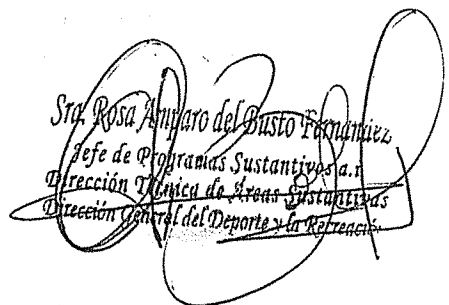 Sra. Rosa Amparo del Busto Fernández
Jefe de Programas Sustantivos a.i
Dirección Técnica de Areas Sustantivas
Dirección General del Deporte y la Recreación